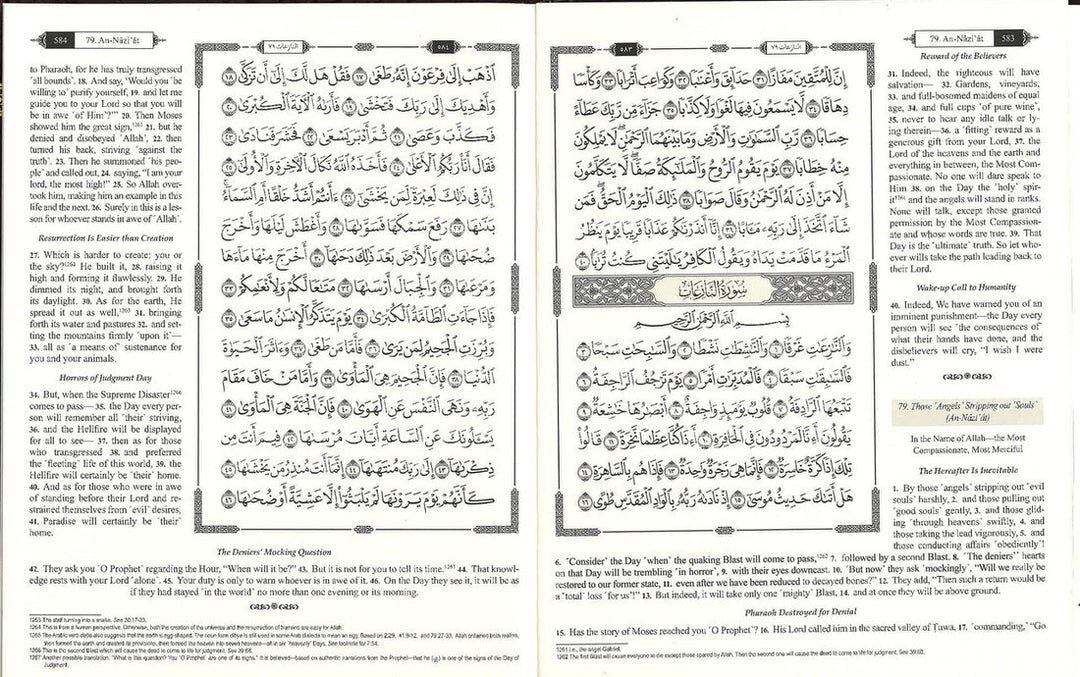 79. An-Nâzi'ât 583
النازعات ٧٩
٥٨٣
إِنَّ لِلْمُتَّقِينَ مَفَازًا ٣١ حَدَآئِقَ وَأَعْنَـٰبًا ٣٢ وَكَوَاعِبَ أَتْرَابًا ٣٣ وَكَأْسًا
دِهَاقًا ٣٤ لَّا يَسْمَعُونَ فِيهَا لَغْوًا وَلَا كِذَّٰبًا ٣٥ جَزَآءً مِّن رَّبِّكَ عَطَآءً
حِسَابًا ٣٦ رَّبِّ ٱلسَّمَـٰوَٰتِ وَٱلْأَرْضِ وَمَا بَيْنَهُمَا ٱلرَّحْمَـٰنِ لَا يَمْلِكُونَ
مِنْهُ خِطَابًا ٣٧ يَوْمَ يَقُومُ ٱلرُّوحُ وَٱلْمَلَـٰٓئِكَةُ صَفًّا لَّا يَتَكَلَّمُونَ
إِلَّا مَنْ أَذِنَ لَهُ ٱلرَّحْمَـٰنُ وَقَالَ صَوَابًا ٣٨ ذَٰلِكَ ٱلْيَوْمُ ٱلْحَقُّ فَمَن
شَآءَ ٱتَّخَذَ إِلَىٰ رَبِّهِۦ مَـَٔابًا ٣٩ إِنَّآ أَنذَرْنَـٰكُمْ عَذَابًا قَرِيبًا يَوْمَ يَنظُرُ
ٱلْمَرْءُ مَا قَدَّمَتْ يَدَاهُ وَيَقُولُ ٱلْكَافِرُ يَـٰلَيْتَنِى كُنتُ تُرَٰبًۢا ٤٠
سُورَةُ النَّازِعَاتِ
بِسْمِ ٱللَّهِ ٱلرَّحْمَـٰنِ ٱلرَّحِيمِ
وَٱلنَّـٰزِعَـٰتِ غَرْقًا ١ وَٱلنَّـٰشِطَـٰتِ نَشْطًا ٢ وَٱلسَّـٰبِحَـٰتِ سَبْحًا ٣
فَٱلسَّـٰبِقَـٰتِ سَبْقًا ٤ فَٱلْمُدَبِّرَٰتِ أَمْرًا ٥ يَوْمَ تَرْجُفُ ٱلرَّاجِفَةُ ٦
تَتْبَعُهَا ٱلرَّادِفَةُ ٧ قُلُوبٌ يَوْمَئِذٍ وَاجِفَةٌ ٨ أَبْصَـٰرُهَا خَـٰشِعَةٌ ٩
يَقُولُونَ أَءِنَّا لَمَرْدُودُونَ فِى ٱلْحَافِرَةِ ١٠ أَءِذَا كُنَّا عِظَـٰمًا نَّخِرَةً ١١ قَالُوا۟
تِلْكَ إِذًا كَرَّةٌ خَاسِرَةٌ ١٢ فَإِنَّمَا هِىَ زَجْرَةٌ وَٰحِدَةٌ ١٣ فَإِذَا هُم بِٱلسَّاهِرَةِ ١٤
هَلْ أَتَىٰكَ حَدِيثُ مُوسَىٰٓ ١٥ إِذْ نَادَىٰهُ رَبُّهُۥ بِٱلْوَادِ ٱلْمُقَدَّسِ طُوًى ١٦
Reward of the Believers
31. Indeed, the righteous will have
salvation— 32. Gardens, vineyards,
33. and full-bosomed maidens of equal
age, 34. and full cups ˹of pure wine˺,
35. never to hear any idle talk or ly-
ing therein—36. a ˹fitting˺ reward as a
generous gift from your Lord, 37. the
Lord of the heavens and the earth and
everything in between, the Most Com-
passionate. No one will dare speak to
Him 38. on the Day the ˹holy˺ spir-
it1261 and the angels will stand in ranks.
None will talk, except those granted
permission by the Most Compassion-
ate and whose words are true. 39. That
Day is the ˹ultimate˺ truth. So let who-
ever wills take the path leading back to
their Lord.
Wake-up Call to Humanity
40. Indeed, We have warned you of an
imminent punishment—the Day every
person will see ˹the consequences of˺
what their hands have done, and the
disbelievers will cry, “I wish I were
dust.”
79. Those ˹Angels˺ Stripping out ˹Souls˺
(An-Nâzi'ât)
In the Name of Allah—the Most
Compassionate, Most Merciful
The Hereafter Is Inevitable
1. By those ˹angels˺ stripping out ˹evil
souls˺ harshly, 2. and those pulling out
˹good souls˺ gently, 3. and those glid-
ing ˹through heavens˺ swiftly, 4. and
those taking the lead vigorously, 5. and
those conducting affairs ˹obediently˺!
6. ˹Consider˺ the Day ˹when˺ the quaking Blast will come to pass,1262 7. followed by a second Blast. 8. ˹The deniers'˺ hearts
on that Day will be trembling ˹in horror˺, 9. with their eyes downcast. 10. ˹But now˺ they ask ˹mockingly˺, “Will we really be
restored to our former state, 11. even after we have been reduced to decayed bones?” 12. They add, “Then such a return would be
a ˹total˺ loss ˹for us˺!” 13. But indeed, it will take only one ˹mighty˺ Blast, 14. and at once they will be above ground.
Pharaoh Destroyed for Denial
15. Has the story of Moses reached you ˹O Prophet˺? 16. His Lord called him in the sacred valley of Ṭuwa, 17. ˹commanding,˺ “Go
1261 i.e., the angel Gabriel.
1262 The first Blast will cause everyone to die except those spared by Allah. Then the second one will cause the dead to come to life for judgment. See 39:68.
584 79. An-Nâzi'ât
النازعات ٧٩
٥٨٤
ٱذْهَبْ إِلَىٰ فِرْعَوْنَ إِنَّهُۥ طَغَىٰ ١٧ فَقُلْ هَل لَّكَ إِلَىٰٓ أَن تَزَكَّىٰ ١٨
وَأَهْدِيَكَ إِلَىٰ رَبِّكَ فَتَخْشَىٰ ١٩ فَأَرَىٰهُ ٱلْـَٔايَةَ ٱلْكُبْرَىٰ ٢٠
فَكَذَّبَ وَعَصَىٰ ٢١ ثُمَّ أَدْبَرَ يَسْعَىٰ ٢٢ فَحَشَرَ فَنَادَىٰ ٢٣
فَقَالَ أَنَا۠ رَبُّكُمُ ٱلْأَعْلَىٰ ٢٤ فَأَخَذَهُ ٱللَّهُ نَكَالَ ٱلْـَٔاخِرَةِ وَٱلْأُولَىٰٓ ٢٥
إِنَّ فِى ذَٰلِكَ لَعِبْرَةً لِّمَن يَخْشَىٰٓ ٢٦ ءَأَنتُمْ أَشَدُّ خَلْقًا أَمِ ٱلسَّمَآءُ
بَنَىٰهَا ٢٧ رَفَعَ سَمْكَهَا فَسَوَّىٰهَا ٢٨ وَأَغْطَشَ لَيْلَهَا وَأَخْرَجَ
ضُحَىٰهَا ٢٩ وَٱلْأَرْضَ بَعْدَ ذَٰلِكَ دَحَىٰهَآ ٣٠ أَخْرَجَ مِنْهَا مَآءَهَا
وَمَرْعَىٰهَا ٣١ وَٱلْجِبَالَ أَرْسَىٰهَا ٣٢ مَتَـٰعًا لَّكُمْ وَلِأَنْعَـٰمِكُمْ ٣٣
فَإِذَا جَآءَتِ ٱلطَّآمَّةُ ٱلْكُبْرَىٰ ٣٤ يَوْمَ يَتَذَكَّرُ ٱلْإِنسَـٰنُ مَا سَعَىٰ ٣٥
وَبُرِّزَتِ ٱلْجَحِيمُ لِمَن يَرَىٰ ٣٦ فَأَمَّا مَن طَغَىٰ ٣٧ وَءَاثَرَ ٱلْحَيَوٰةَ
ٱلدُّنْيَا ٣٨ فَإِنَّ ٱلْجَحِيمَ هِىَ ٱلْمَأْوَىٰ ٣٩ وَأَمَّا مَنْ خَافَ مَقَامَ
رَبِّهِۦ وَنَهَى ٱلنَّفْسَ عَنِ ٱلْهَوَىٰ ٤٠ فَإِنَّ ٱلْجَنَّةَ هِىَ ٱلْمَأْوَىٰ ٤١
يَسْـَٔلُونَكَ عَنِ ٱلسَّاعَةِ أَيَّانَ مُرْسَىٰهَا ٤٢ فِيمَ أَنتَ مِن
ذِكْرَىٰهَآ ٤٣ إِلَىٰ رَبِّكَ مُنتَهَىٰهَآ ٤٤ إِنَّمَآ أَنتَ مُنذِرُ مَن يَخْشَىٰهَا ٤٥
كَأَنَّهُمْ يَوْمَ يَرَوْنَهَا لَمْ يَلْبَثُوٓا۟ إِلَّا عَشِيَّةً أَوْ ضُحَىٰهَا ٤٦
to Pharaoh, for he has truly transgressed
˹all bounds˺. 18. And say, ‘Would you ˹be
willing to˺ purify yourself, 19. and let me
guide you to your Lord so that you will
be in awe ˹of Him˺?’” 20. Then Moses
showed him the great sign,1263 21. but he
denied and disobeyed ˹Allah˺, 22. then
turned his back, striving ˹against the
truth˺. 23. Then he summoned ˹his peo-
ple˺ and called out, 24. saying, “I am your
lord, the most high!” 25. So Allah over-
took him, making him an example in this
life and the next. 26. Surely in this is a les-
son for whoever stands in awe of ˹Allah˺.
Resurrection Is Easier than Creation
27. Which is harder to create: you or
the sky?1264 He built it, 28. raising it
high and forming it flawlessly. 29. He
dimmed its night, and brought forth
its daylight. 30. As for the earth, He
spread it out as well,1265 31. bringing
forth its water and pastures 32. and set-
ting the mountains firmly ˹upon it˺—
33. all as ˹a means of˺ sustenance for
you and your animals.
Horrors of Judgment Day
34. But, when the Supreme Disaster1266
comes to pass— 35. the Day every per-
son will remember all ˹their˺ striving,
36. and the Hellfire will be displayed
for all to see— 37. then as for those
who transgressed 38. and preferred
the ˹fleeting˺ life of this world, 39. the
Hellfire will certainly be ˹their˺ home.
40. And as for those who were in awe
of standing before their Lord and re-
strained themselves from ˹evil˺ desires,
41. Paradise will certainly be ˹their˺
home.
The Deniers' Mocking Question
42. They ask you ˹O Prophet˺ regarding the Hour, “When will it be?” 43. But it is not for you to tell its time.1267 44. That knowl-
edge rests with your Lord ˹alone˺. 45. Your duty is only to warn whoever is in awe of it. 46. On the Day they see it, it will be as
if they had stayed ˹in the world˺ no more than one evening or its morning.
1263 The staff turning into a snake. See 20:17-23.
1264 This is from a human perspective. Otherwise, both the creation of the universe and the resurrection of humans are easy for Allah.
1265 The Arabic verb daḥa also suggests that the earth is egg-shaped. The noun form diḥya is still used in some Arab dialects to mean an egg. Based on 2:29, 41:9-12, and 79:27-33, Allah ordained both realms,
then formed the earth and created its provisions, then formed the heaven into seven heavens—all in six ˹heavenly˺ Days. See footnote for 7:54.
1266 This is the second Blast which will cause the dead to come to life for judgment. See 39:68.
1267 Another possible translation: “What is this question? You ˹O Prophet˺ are one of its signs.” It is believed—based on authentic narrations from the Prophet—that he (ﷺ) is one of the signs of the Day of
Judgment.